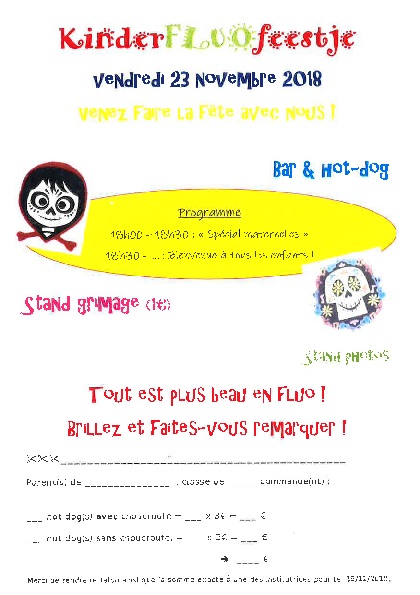 KinderFLUOfeestje
Vendredi 23 Novembre 2018
Venez Faire La Fête avec Nous !
Bar & Hot-dog
Programme
18h00 – 18h30 : « Spécial maternelles »
18h30 - … : Bienvenue à tous les enfants !
Stand grimage (1€)
Stand photos
Tout est plus beau en Fluo !
Brillez et Faites-vous remarquer !
Parent(s) de ________________, classe de ______ commande(nt) :
___ hot dog(s) avec choucroute = ___ x 3€ = ___ €
___ hot dog(s) sans choucroute = ___ x 3€ = ___ €
→ ____ €
Merci de rendre ce talon ainsi que la somme exacte à une des institutrices pour le /11/2018.